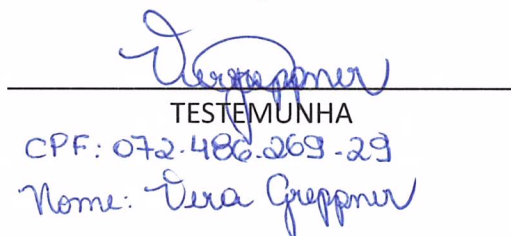 Veragreppner
TESTEMUNHA
CPF: 072.486.269-29
Nome: Vera Greppner